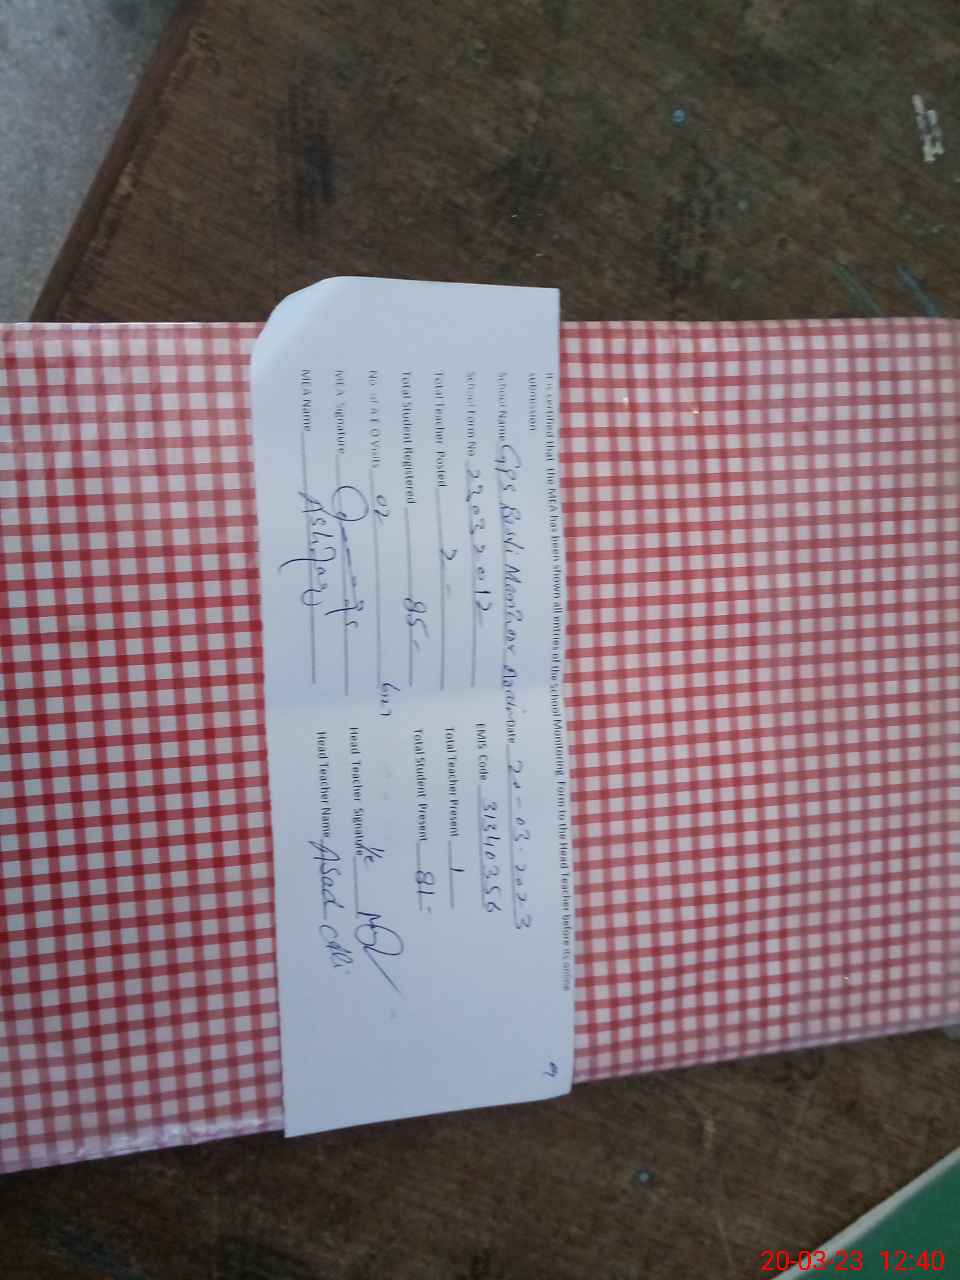 It is certified that the MEA has been shown all entries of the School Monitoring Form to the Head Teacher before its online
submission
School Name GPS Basti Manthar Date 20-03-2023
School Form No 22032012 EMIS Code 31340356
Total Teacher Posted 2 Total Teacher Present 1
Total Student Registered 85 Total Student Present 81
No. of A E O Visits 02
MEA Signature Head Teacher Signature
MEA Name Ashgar Head Teacher Name Asad Ali
20-03-23 12:40